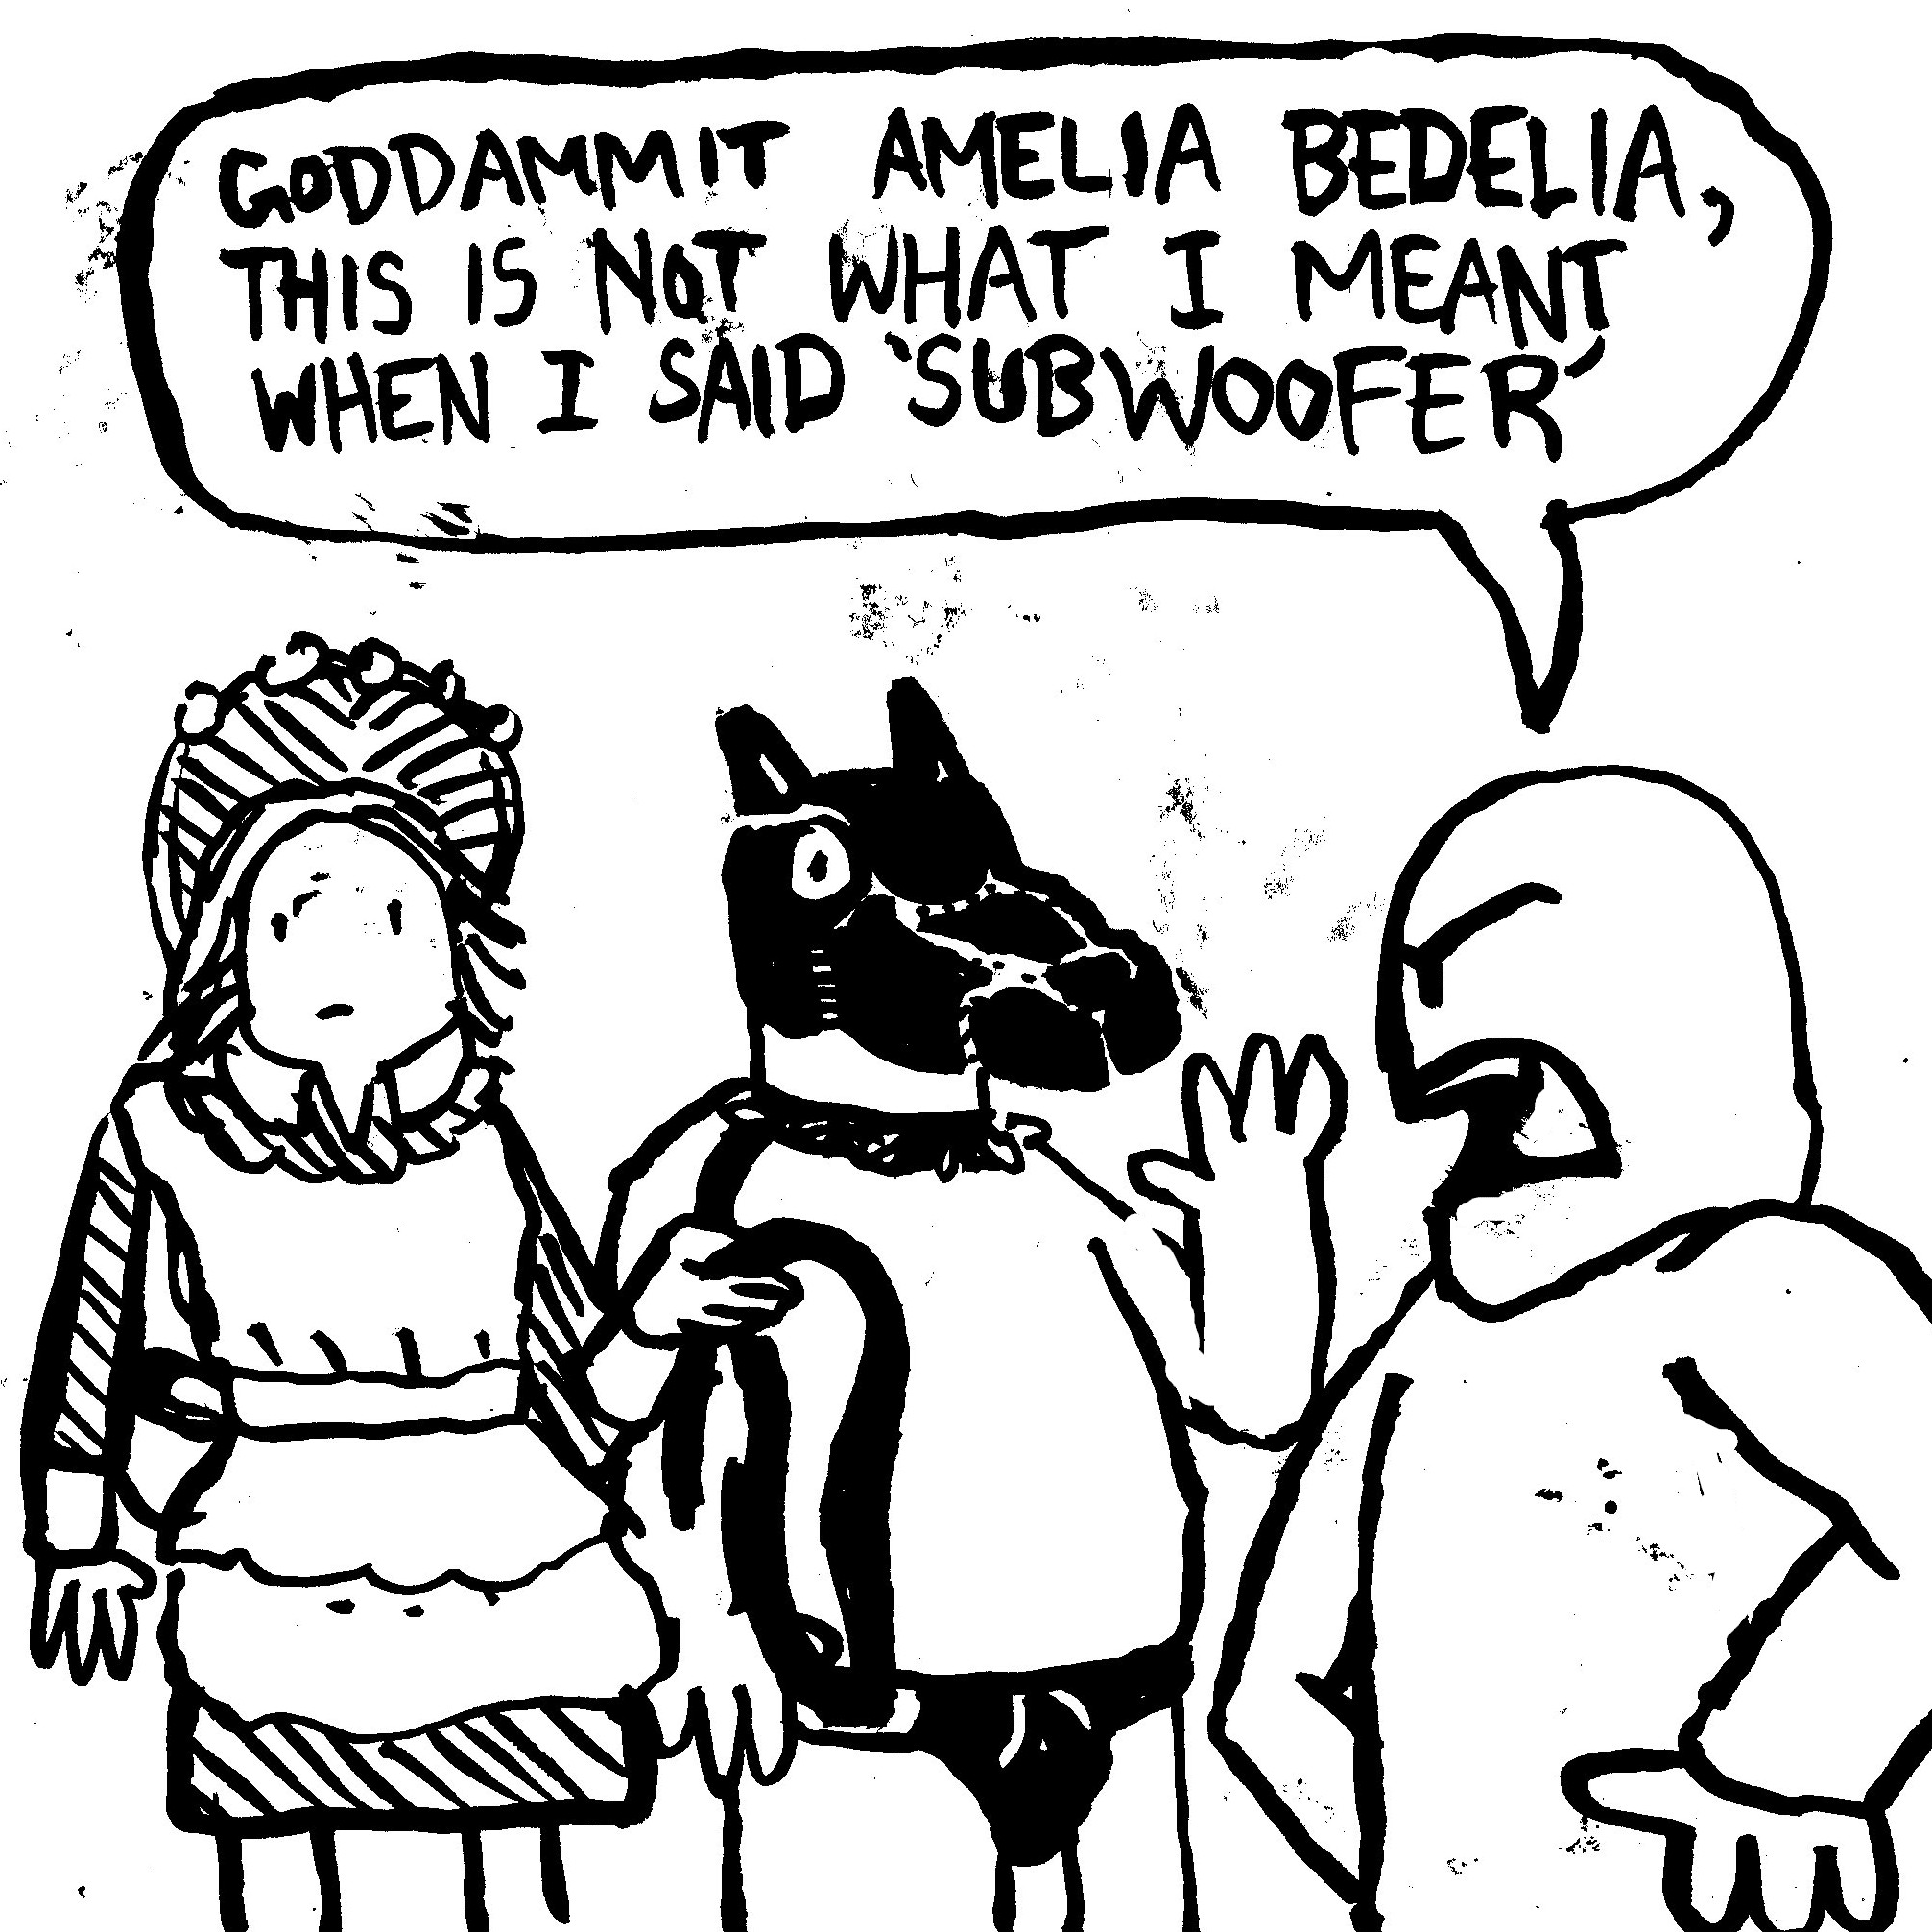 GODDAMMIT AMELIA BEDELIA,
THIS IS NOT WHAT I MEANT
WHEN I SAID 'SUBWOOFER'